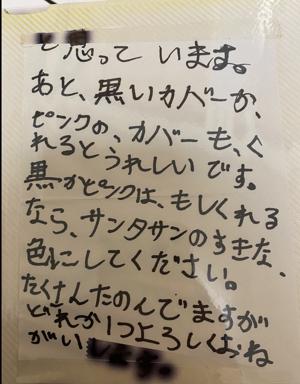 と思っています。
あと、黒いカバーか、
ピンクの、カバーも、く
れるとうれしいです。
黒かピンクは、もしくれる
なら、サンタサンのすきな、
色にしてください。
たくさんたのんでますが
どれか1つよろしくおね
がいします。